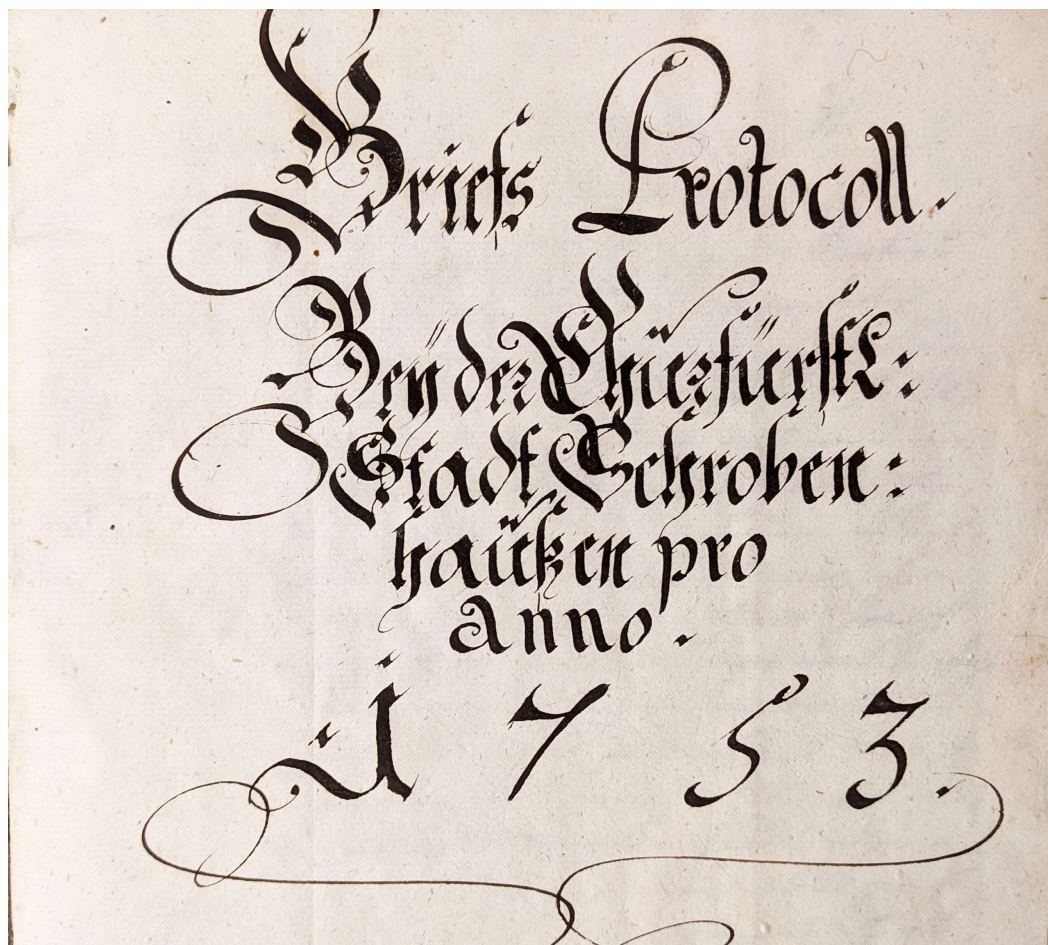 Briefs Protocoll.
Beÿ der Chürfürstl:
Stadt Schroben:
haüßen pro
anno.
1753.